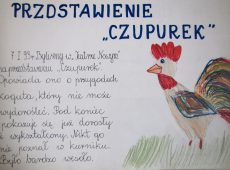 PRZDSTAWIENIE
„CZUPUREK”
7 I 99r. Byliśmy w „Teatrze
na przedstawieniu „Czupurek”.
Opowiada ono o przygodach
koguta, który nie może
wydorośleć. Pod koniec
okazuje się już dorosły
i wykształcony. Nikt go
nie poznał w kurniku.
Było bardzo wesoło.